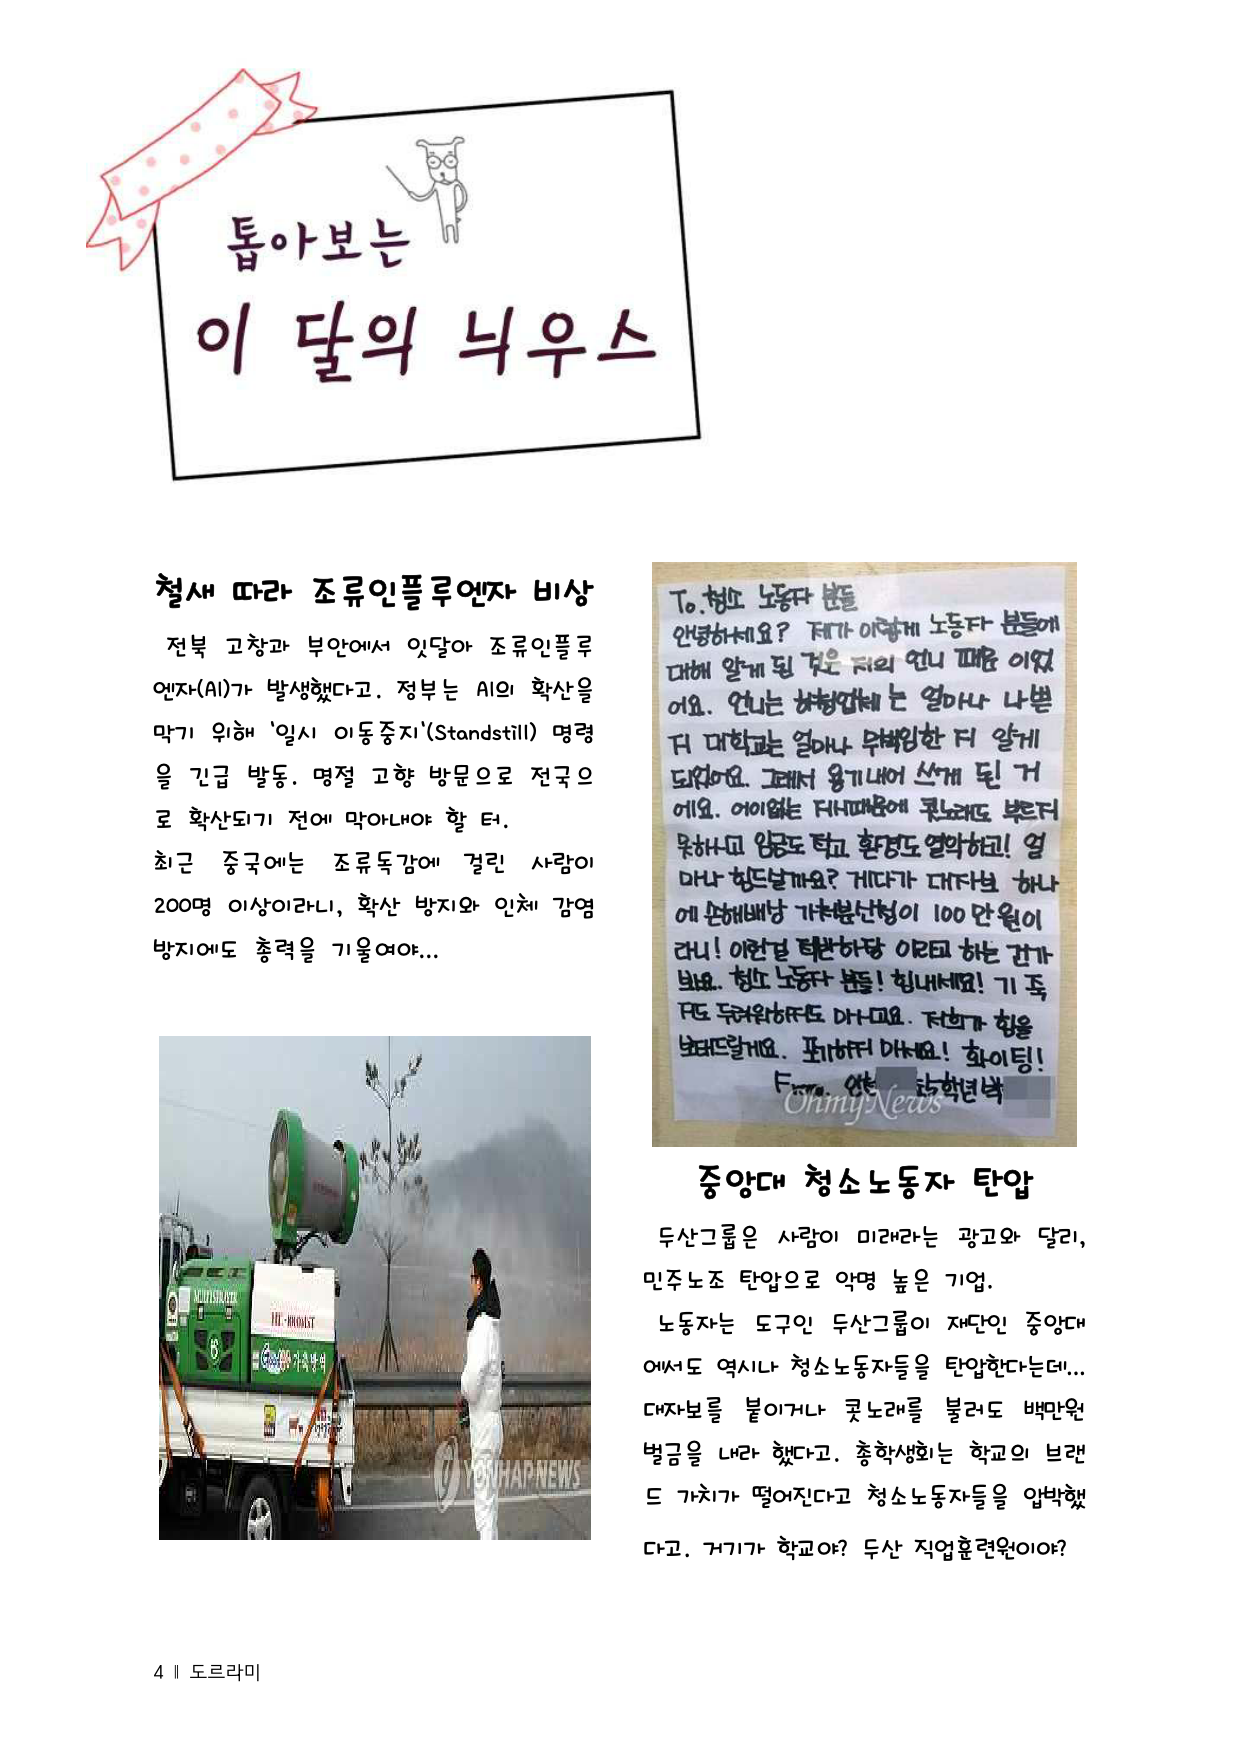 톺아보는
이 달의 늬우스
철새 따라 조류인플루엔자 비상
전북 고창과 부안에서 잇달아 조류인플루
엔자(AI)가 발생했다고. 정부는 AI의 확산을
막기 위해 '일시 이동중지'(Standstill) 명령
을 긴급 발동. 명절 고향 방문으로 전국으
로 확산되기 전에 막아내야 할 터.
최근 중국에는 조류독감에 걸린 사람이
200명 이상이라니, 확산 방지와 인체 감염
방지에도 총력을 기울여야...
MULTI SPRAYER
가축방역
YONHAPNEWS
To. 청소 노동자 분들
안녕하세요? 제가 이렇게 노동자 분들에
대해 알게 된 것은 저희 언니 때문 이었
어요. 언니는 하청업체는 얼마나 나쁜
지 대학교는 얼마나 무책임한 지 알게
되었어요. 그래서 용기내어 쓰게 된 거
에요. 어이없는 지시때문에 콧노래도 부르지
못하시고 임금도 적고 환경도 열악하고! 얼
마나 힘드실까요? 게다가 대자보 하나
에 손해배상 가처분신청이 100만원이
라니! 이런걸 적반하장 이라고 하는 건가
봐요. 청소 노동자 분들! 힘내세요! 기 죽
지도 두려워하지도 마시고요. 저희가 힘을
보태드릴게요. 포기하지 마세요! 화이팅!
From. 학년 박
OhmyNews
중앙대 청소노동자 탄압
두산그룹은 사람이 미래라는 광고와 달리,
민주노조 탄압으로 악명 높은 기업.
노동자는 도구인 두산그룹이 재단인 중앙대
에서도 역시나 청소노동자들을 탄압한다는데...
대자보를 붙이거나 콧노래를 불러도 백만원
벌금을 내라 했다고. 총학생회는 학교의 브랜
드 가치가 떨어진다고 청소노동자들을 압박했
다고. 거기가 학교야? 두산 직업훈련원이야?
4 ‖ 도르라미